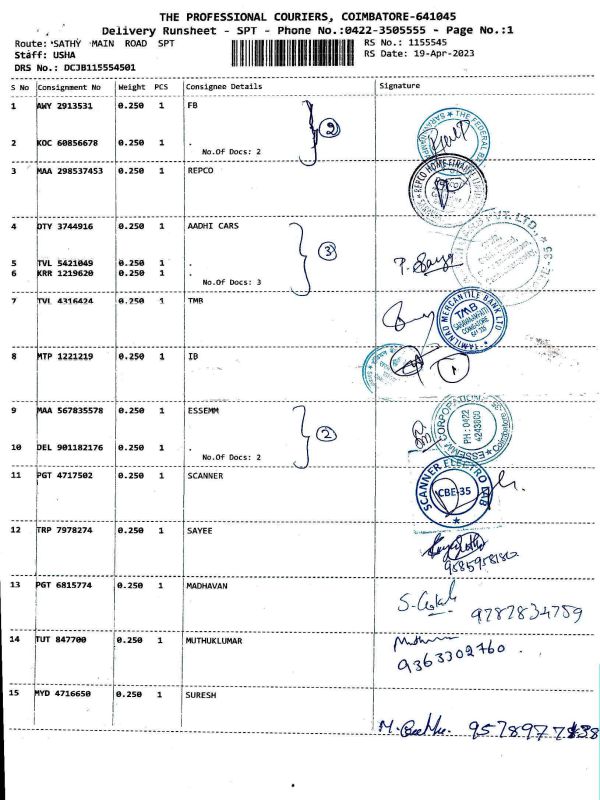 THE PROFESSIONAL COURIERS, COIMBATORE-641045
Delivery Runsheet - SPT - Phone No.:0422-3505555 - Page No.:1
Route: SATHY MAIN ROAD SPT
RS No.: 1155545
Staff: USHA
RS Date: 19-Apr-2023
DRS No.: DCJB115554501
S No Consignment No Weight PCS Consignee Details Signature
1 AWY 2913531 0.250 1 FB
2
2 KOC 60856678 0.250 1 .
No.Of Docs: 2
3 MAA 298537453 0.250 1 REPCO
REPCO HOME FINANCE
4 DTY 3744916 0.250 1 AADHI CARS
3
5 TVL 5421049 0.250 1 .
6 KRR 1219620 0.250 1 .
No.Of Docs: 3
7 TVL 4316424 0.250 1 TMB
TAMILNAD MERCANTILE BANK LTD
TMB
8 MTP 1221219 0.250 1 IB
9 MAA 567835578 0.250 1 ESSEMM
2
PH: 0422
4243000
10 DEL 901182176 0.250 1 .
No.Of Docs: 2
11 PGT 4717502 0.250 1 SCANNER
SCANNER ELECTRO LAB
CBE-35
12 TRP 7978274 0.250 1 SAYEE
13 PGT 6815774 0.250 1 MADHAVAN
9787834759
14 TUT 847700 0.250 1 MUTHUKLUMAR
9363302760
15 MYD 4716650 0.250 1 SURESH